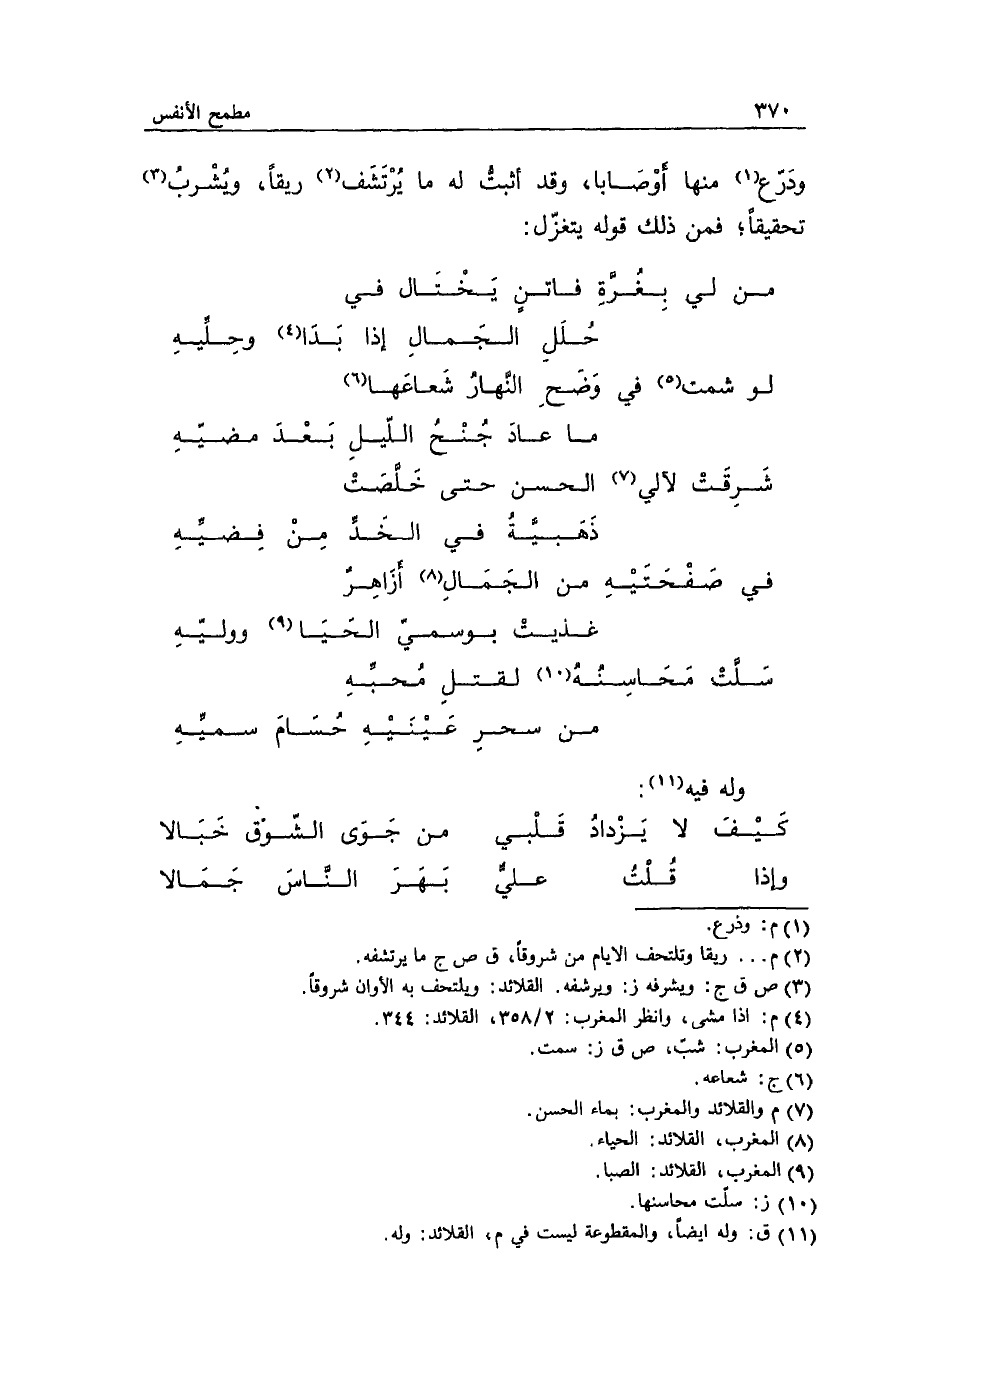 ٣٧٠ مطمح الأنفس
ودَرّع(١) منها أَوْصَابا، وقد أثبتُّ له ما يُرْتَشَف(٢) ريقاً، ويُشْربُ(٣)
تحقيقاً؛ فمن ذلك قوله يتغزّل:
من لي بِغُرَّةِ فاتنٍ يَخْتَال في
حُلَلِ الجَمالِ إذا بَدَا(٤) وحِلِّيهِ
لو شمت(٥) في وَضَحِ النَّهارُ شَعاعَها(٦)
ما عادَ جُنْحُ اللّيلِ بَعْدَ مضيّهِ
شَرِقَتْ لآلي(٧) الحسن حتى خَلَّصَتْ
ذَهَبيَّةُ في الخَدِّ مِنْ فِضيِّهِ
في صَفْحَتَيْهِ من الجَمَالِ(٨) أَزَاهِرٌ
غذيتْ بوسميّ الحَيَا(٩) ووليّهِ
سَلَّتْ مَحَاسِنُهُ(١٠) لقتلِ مُحبِّهِ
من سحرِ عَيْنَيْهِ حُسَامَ سميِّهِ
وله فيه(١١):
كَيْفَ لا يَزْدادُ قَلْبي من جَوَى الشّوْق خَبَالا
وإذا قُلْتُ عليٌّ بَهَرَ النَّاسَ جَمَالا
(١) م: وذرع.
(٢) م... ريقا وتلتحف الايام من شروقاً، ق ص ج ما يرتشفه.
(٣) ص ق ج: ويشرفه ز: ويرشفه. القلائد: ويلتحف به الأوان شروقاً.
(٤) م: اذا مشى، وانظر المغرب: ٣٥٨/٢، القلائد: ٣٤٤.
(٥) المغرب: شبّ، ص ق ز: سمت.
(٦) ج: شعاعه.
(٧) م والقلائد والمغرب: بماء الحسن.
(٨) المغرب، القلائد: الحياء.
(٩) المغرب، القلائد: الصبا.
(١٠) ز: سلّت محاسنها.
(١١) ق: وله ايضاً، والمقطوعة ليست في م، القلائد: وله.